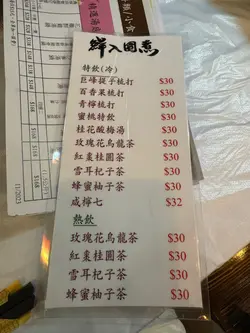 鮮入圍煮
特飲(冷)
巨峰提子梳打 $30
百香果梳打 $30
青檸梳打 $30
蜜桃特飲 $30
桂花酸梅湯 $30
玫瑰花烏龍茶 $30
紅棗桂圓茶 $30
雪耳杞子茶 $30
蜂蜜柚子茶 $30
咸檸七 $32
熱飲
玫瑰花烏龍茶 $30
紅棗桂圓茶 $30
雪耳杞子茶 $30
蜂蜜柚子茶 $30
11/2023